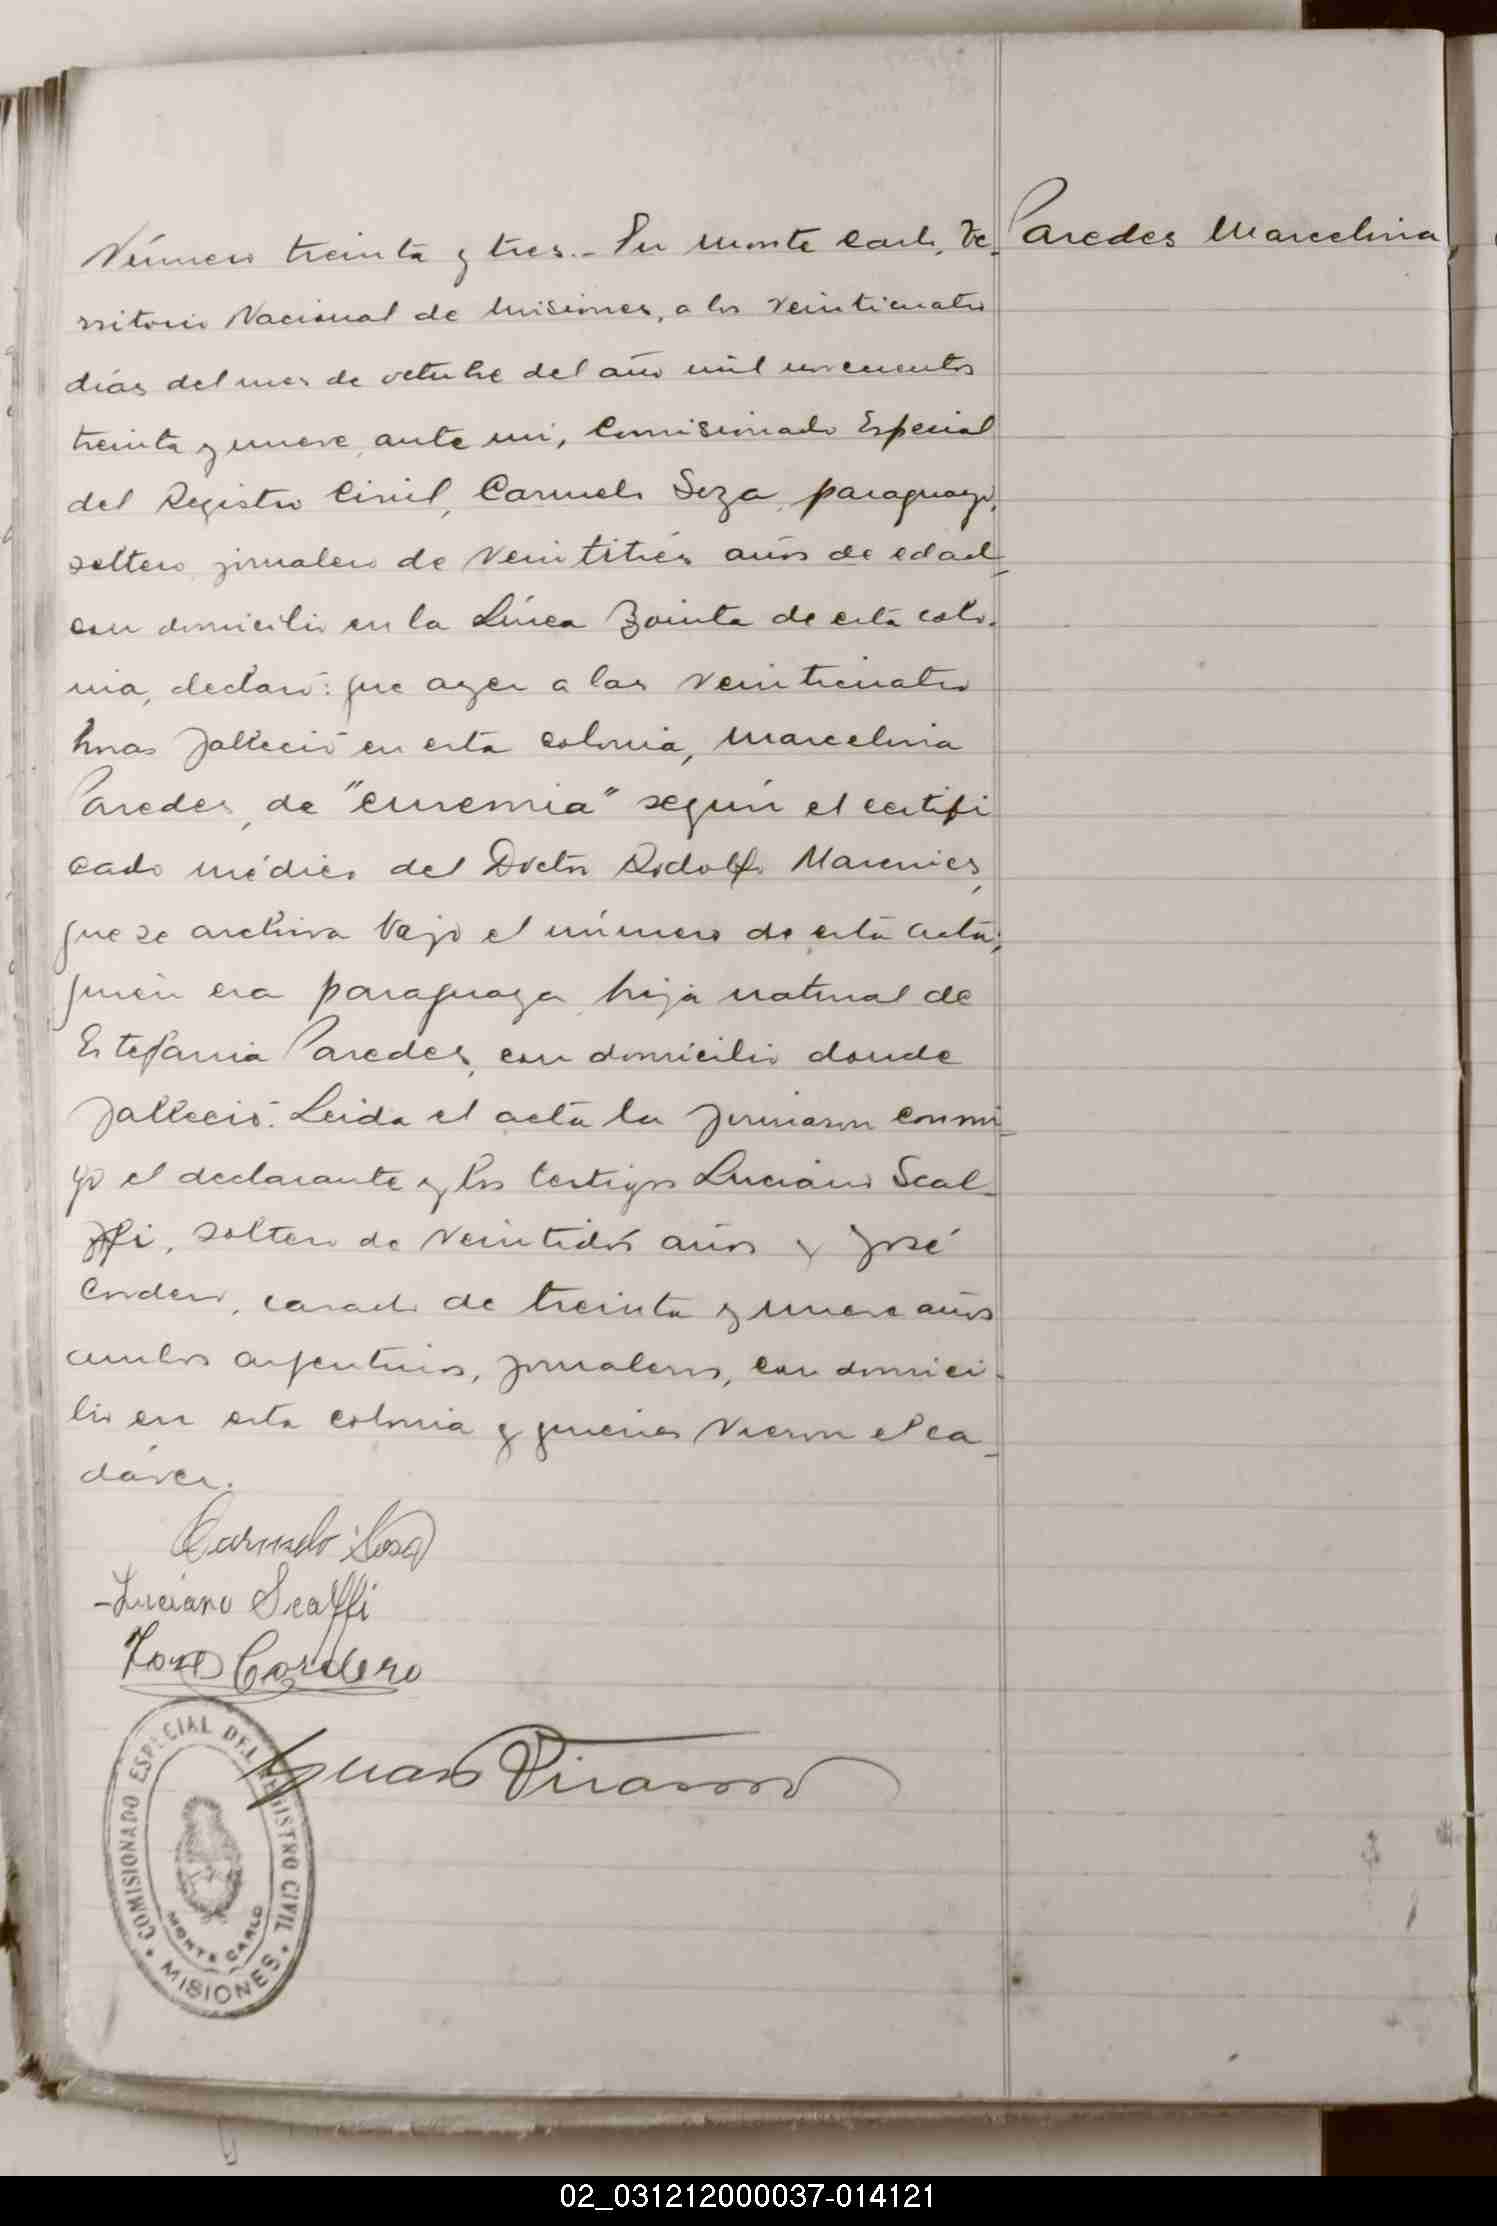 Número treinta y tres.- En Monte Carlo, Te-
Paredes Marcelina
rritorio Nacional de Misiones, a los veinticuatro
días del mes de octubre del año mil novecientos
treinta y nueve, ante mi, Comisionado Especial
del Registro Civil, Carmelo Soza, paraguayo,
soltero, jornalero de veintitrés años de edad,
con domicilio en la Línea Quinta de esta colo-
nia, declaró: que ayer a las veinticuatro
horas falleció en esta colonia, Marcelina
Paredes, de "enremia" según el certifi
cado médico del Doctor Rodolfo
que se archiva bajo el número de esta acta;
quien era paraguaya, hija natural de
Estefania Paredes, con domicilio donde
falleció. Leida el acta la firmaron conmi-
go el declarante y los testigos Luciano Scal-
ffi, soltero de veintidós años y José
Cordero, casado de treinta y nueve años
ambos argentinos, jornaleros, con domici-
lio en esta colonia y quienes vieron el ca-
dáver.
Carmelo Sosa
-Luciano Scalffi
Jose Cordero
COMISIONADO ESPECIAL DEL REGISTRO CIVIL
MONTE CARLO
MISIONES
02_031212000037-014121